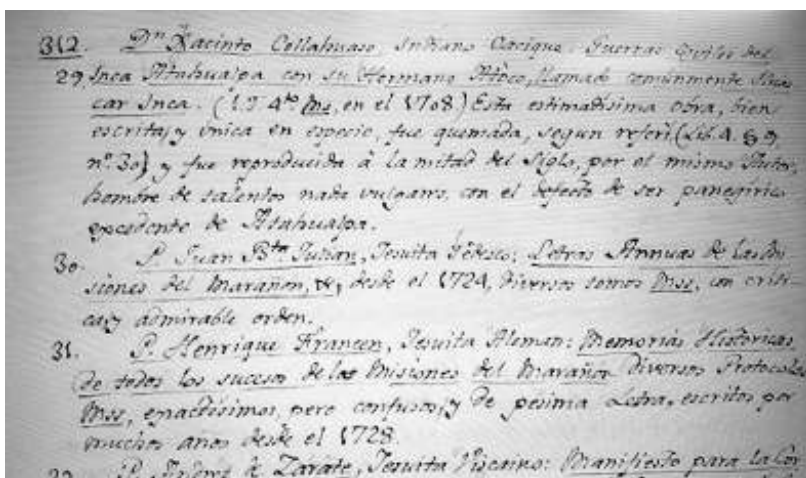 312. Dn Jacinto Collahuaso, Indiano Cacique: Guerras Civiles del
29 Inca Atahualpa con su Hermano Atoco, llamado comúnmente Huas
car Inca. (1.T. 4to Ms, en el 1708) Esta estimadísima obra, bien
escrita, y única en especie, fue quemada, segun referí (Lib. 4. § 9
nº. 30) y fue reproducida à la mitad del Siglo, por el mismo Autor,
hombre de talentos nada vulgares, con el defecto de ser panegirico
excedente de Atahualpa.
30. P. Juan Bta Julian, Jesuita Tedesco; Letras Annuas de las Mi
siones del Marañon, &, desde el 1724, diversos tomos Mss, con criti-
ca, y admirable orden.
31. P. Henrique Francen, Jesuita Aleman: Memorias Historicas
de todos los sucesos de las Misiones del Marañon diversos Protocolos
Mss, exactísimos, pero confusos, y de pesima Letra, escritos por
muchos anos desde el 1728.
32. P. Andres de Zárate, Jesuita Viscaino: Manifiesto para la Cor